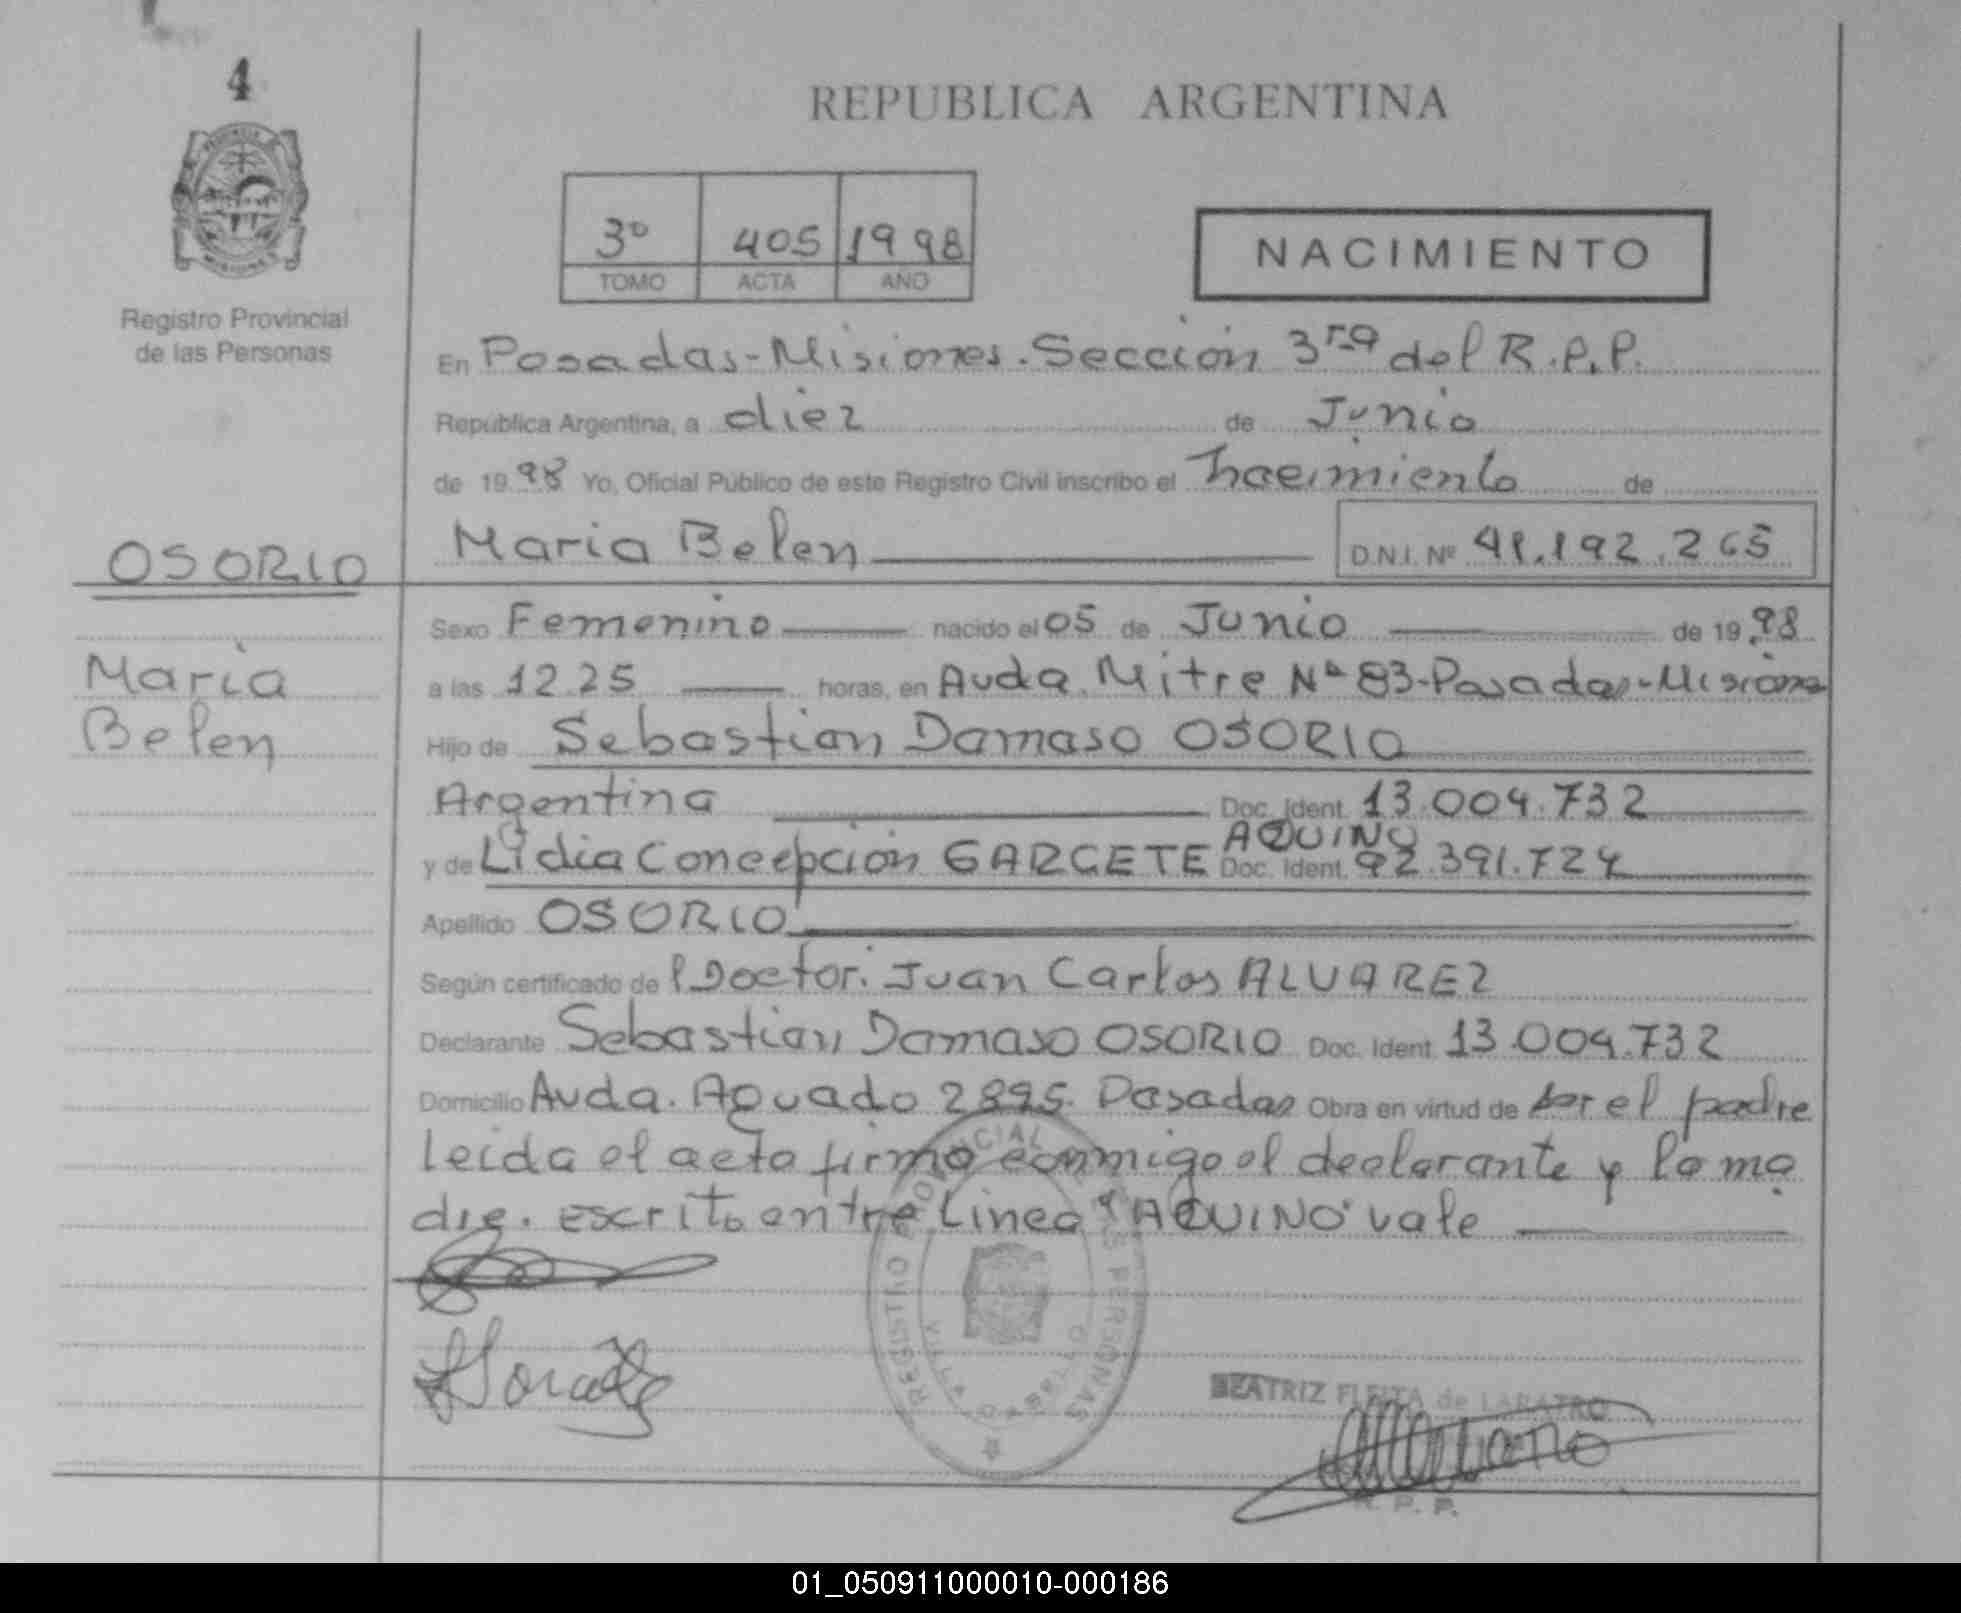 4
REPUBLICA ARGENTINA
3º 405 1998
TOMO ACTA AÑO
NACIMIENTO
Registro Provincial
de las Personas
En Posadas-Misiones.Sección 3ra del R.P.P.
República Argentina, a diez de Junio
de 1998 Yo, Oficial Público de este Registro Civil inscribo el nacimiento de
Maria Belen D.N.I. Nº 41.192.265
OSORIO
Maria
Belen
Sexo Femenino nacido el 05 de Junio de 1998
a las 12.25 horas, en Avda. Mitre Nº 83-Posadas-Misiones
Hijo de Sebastian Damaso OSORIO
Argentina Doc. Ident. 13.004.732
AQUINO
y de Lidia Concepción GARCETE Doc. Ident. 92.391.724
Apellido OSORIO
Según certificado del Doctor. Juan Carlos ALVAREZ
Declarante Sebastian Damaso OSORIO Doc. Ident. 13.004.732
Domicilio Avda. Aguado 2895. Posadas Obra en virtud de ser el padre
Leida el acta firma conmigo el declarante y la ma
dre. escrito entre Linea "AQUINO" vale
REGISTRO PROVINCIAL DE LAS PERSONAS
BEATRIZ FLEITA de LABATRO
R. P. P.
01_050911000010-000186